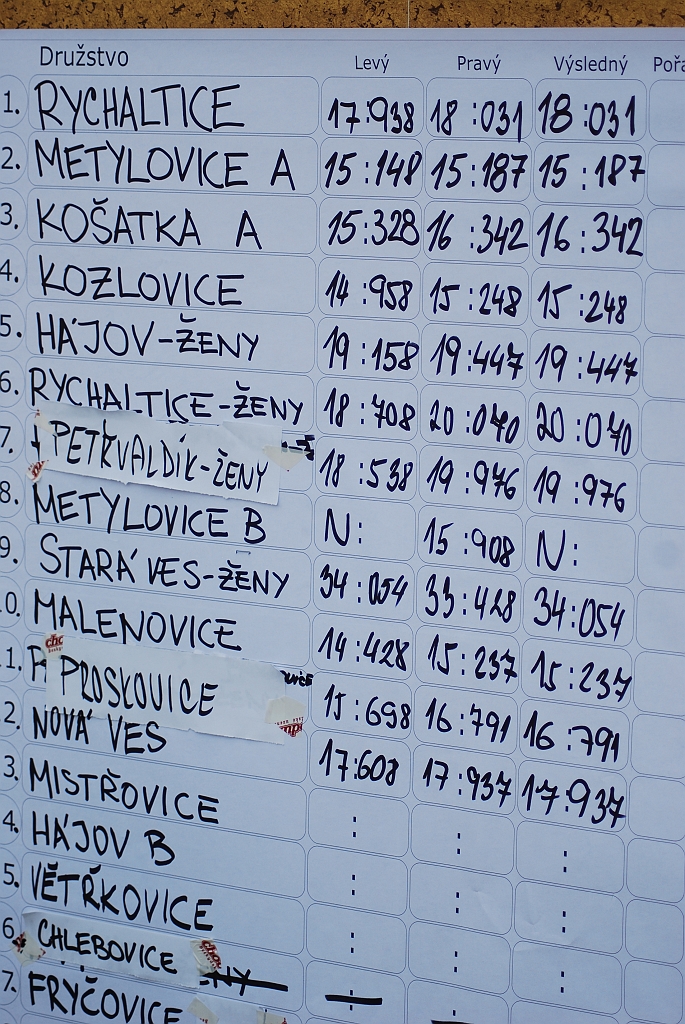 Družstvo Levý Pravý Výsledný Pořa
1. RYCHALTICE 17:938 18:031 18:031
2. METYLOVICE A 15:148 15:187 15:187
3. KOŠATKA A 15:328 16:342 16:342
4. KOZLOVICE 14:958 15:248 15:248
5. HÁJOV-ŽENY 19:158 19:447 19:447
6. RYCHALTICE-ŽENY 18:708 20:040 20:040
7. PETŘVALDÍK-ŽENY 18:538 19:976 19:976
8. METYLOVICE B N: 15:908 N:
9. STARÁ VES-ŽENY 34:054 33:428 34:054
0. MALENOVICE 14:428 15:237 15:237
1. PROSKOVICE 15:698 16:791 16:791
2. NOVÁ VES 17:608 17:937 17:937
3. MISTŘOVICE : : :
4. HÁJOV B : : :
5. VĚTŘKOVICE : : :
6. CHLEBOVICE
7. FRYČOVICE